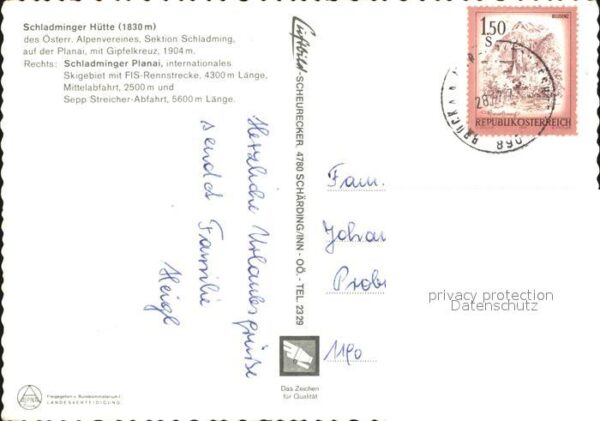 Schladminger Hütte (1830 m)
des Österr. Alpenvereines, Sektion Schladming,
auf der Planai, mit Gipfelkreuz, 1904 m.
Rechts: Schladminger Planai, internationales
Skigebiet mit FIS-Rennstrecke, 4300 m Länge,
Mittelabfahrt, 2500 m und
Sepp Streicher-Abfahrt, 5600 m Länge.
Herzliche Urlaubsgrüße
sendet Familie
Heigl
Luftbild-SCHEURECKER, 4780 SCHÄRDING/INN - OÖ. - TEL. 23 29
Das Zeichen
für Qualität
Freigegeben v. Bundesministerium f.
LANDESVERTEIDIGUNG.
1.50
S
BLUDENZ
REPUBLIK ÖSTERREICH
Fam.
Johan
Probs
1190
privacy protection
Datenschutz